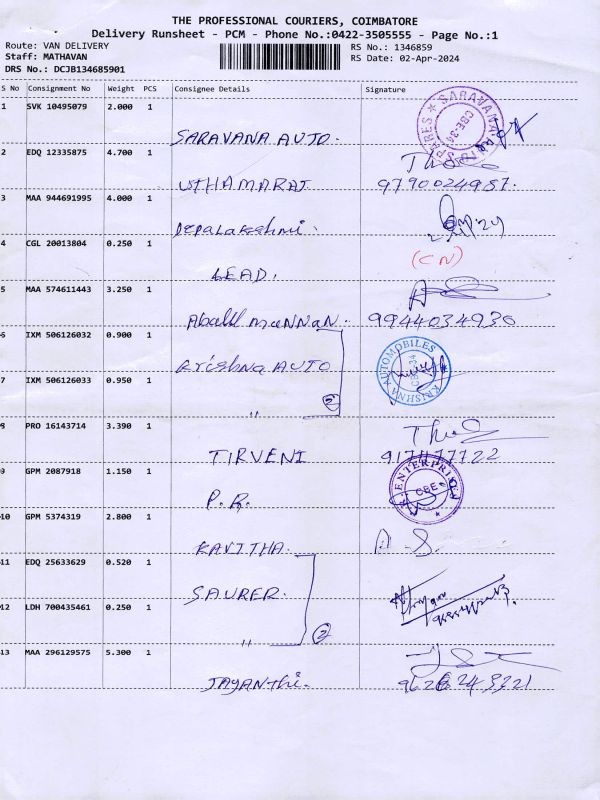 THE PROFESSIONAL COURIERS, COIMBATORE
Delivery Runsheet - PCM - Phone No.:0422-3505555 - Page No.:1
Route: VAN DELIVERY
RS No.: 1346859
Staff: MATHAVAN
RS Date: 02-Apr-2024
DRS No.: DCJB134685901
S No Consignment No Weight PCS Consignee Details Signature
1 SVK 10495079 2.000 1
SARAVANA AUTO.
SARAVANA AUTO SPARES CBE-34
2 EDQ 12335875 4.700 1
UTHAMARAJ
9790024987.
3 MAA 944691995 4.000 1
Depalakshmi.
4 CGL 20013804 0.250 1
LEAD.
(CN)
5 MAA 574611443 3.250 1
Abdul mannan.
9944034930
6 IXM 506126032 0.900 1
Krishna AUTO
KRISHNA AUTOMOBILES CBE-34
7 IXM 506126033 0.950 1
" 2
8 PRO 16143714 3.390 1
TIRVENI
917477722
9 GPM 2087918 1.150 1
P. R.
ENTERPRISES CBE
10 GPM 5374319 2.800 1
KAVITHA.
11 EDQ 25633629 0.520 1
SAURER.
12 LDH 700435461 0.250 1
" 2
13 MAA 296129575 5.300 1
JAYANTHI.